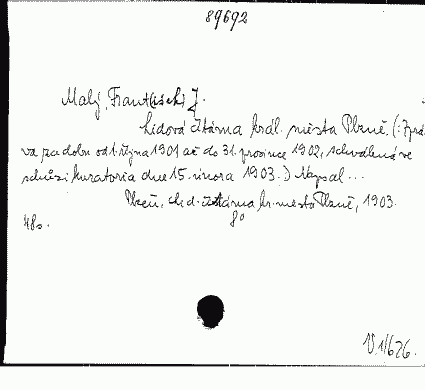 89692
Malý, Frant(išek) J.
Lidová čítárna král. města Plzně. (: Zprá-
va za dobu od 1. října 1901 až do 31. prosince 1902, schválená ve
schůzi kuratoria dne 15. února 1903.) Napsal ...
Plzeň, Lid. čítárna kr. města Plzně, 1903.
48s. 8°
V 1/626.